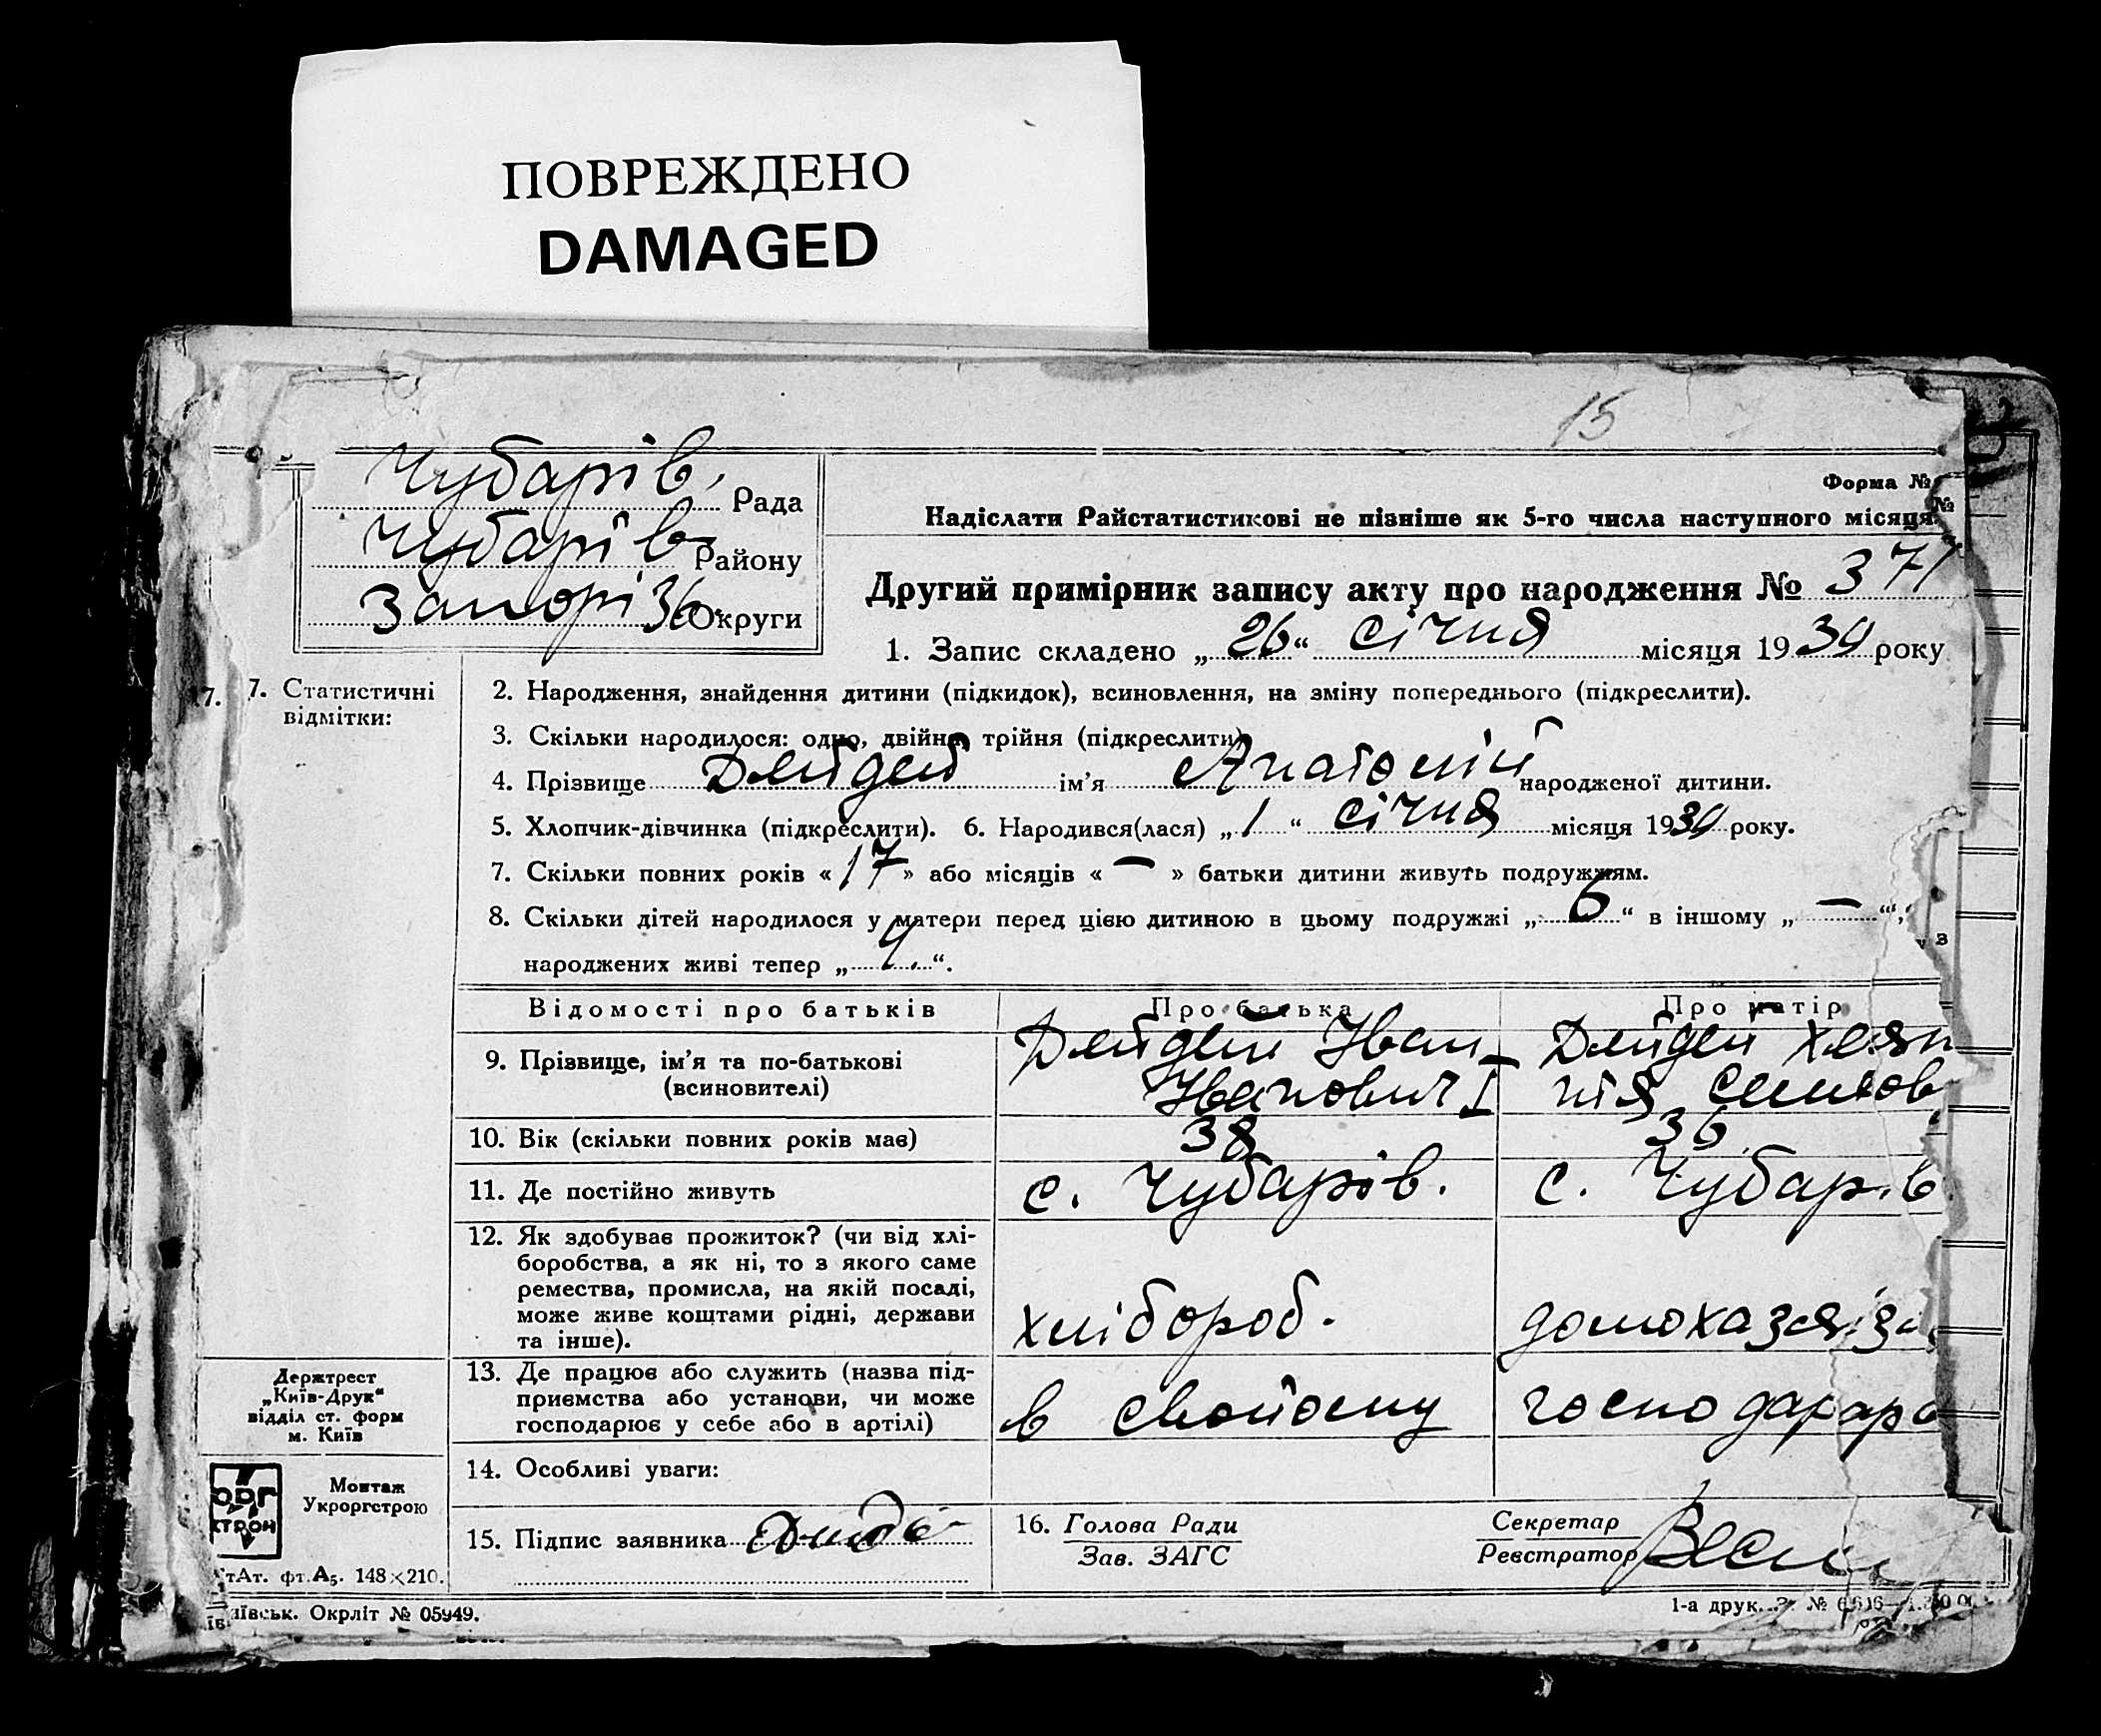 ПОВРЕЖДЕНО
DAMAGED
15
Чубарів. Рада
Чубарів. Району
Запоріз. Округи
Форма №
Надіслати Райстатистикові не пізніше як 5-го числа наступного місяця
№
Другий примірник запису акту про народження № 371
1. Запис складено „26“ січня місяця 1930 року
7.
7. Статистичні
відмітки:
2. Народження, знайдення дитини (підкидок), всиновлення, на зміну попереднього (підкреслити).
3. Скільки народилося: одно, двійня, трійня (підкреслити)
4. Прізвище Дейдей ім’я Анатолій народженої дитини.
5. Хлопчик-дівчинка (підкреслити). 6. Народився(лася) „1“ січня місяця 1930 року.
7. Скільки повних років «17» або місяців «—» батьки дитини живуть подружжям.
8. Скільки дітей народилося у матери перед цією дитиною в цьому подружжі „6“ в іншому „—“,
з
народжених живі тепер „4.“.
Відомості про батьків Про батька Про матір
9. Прізвище, ім’я та по-батькові
(всиновителі)
Дейдей Иван
Иванович I
Дейдей
10. Вік (скільки повних років має) 38 36
11. Де постійно живуть с. Чубарів. с. Чубарів
12. Як здобуває прожиток? (чи від хлі-
боробства, а як ні, то з якого саме
ремества, промисла, на якій посаді,
може живе коштами рідні, держави
та інше).
хлібороб.
13. Де працює або служить (назва під-
приємства або установи, чи може
господарює у себе або в артілі)
в свойому
14. Особливі уваги:
15. Підпис заявника
16. Голова Ради
Зав. ЗАГС
Секретар
Реєстратор
Держтрест
„Київ-Друк“
відділ ст. форм
м. Київ
Монтаж
Укроргстрою
фт. А5. 148×210.
Окрліт № 05949.
1-а друк.